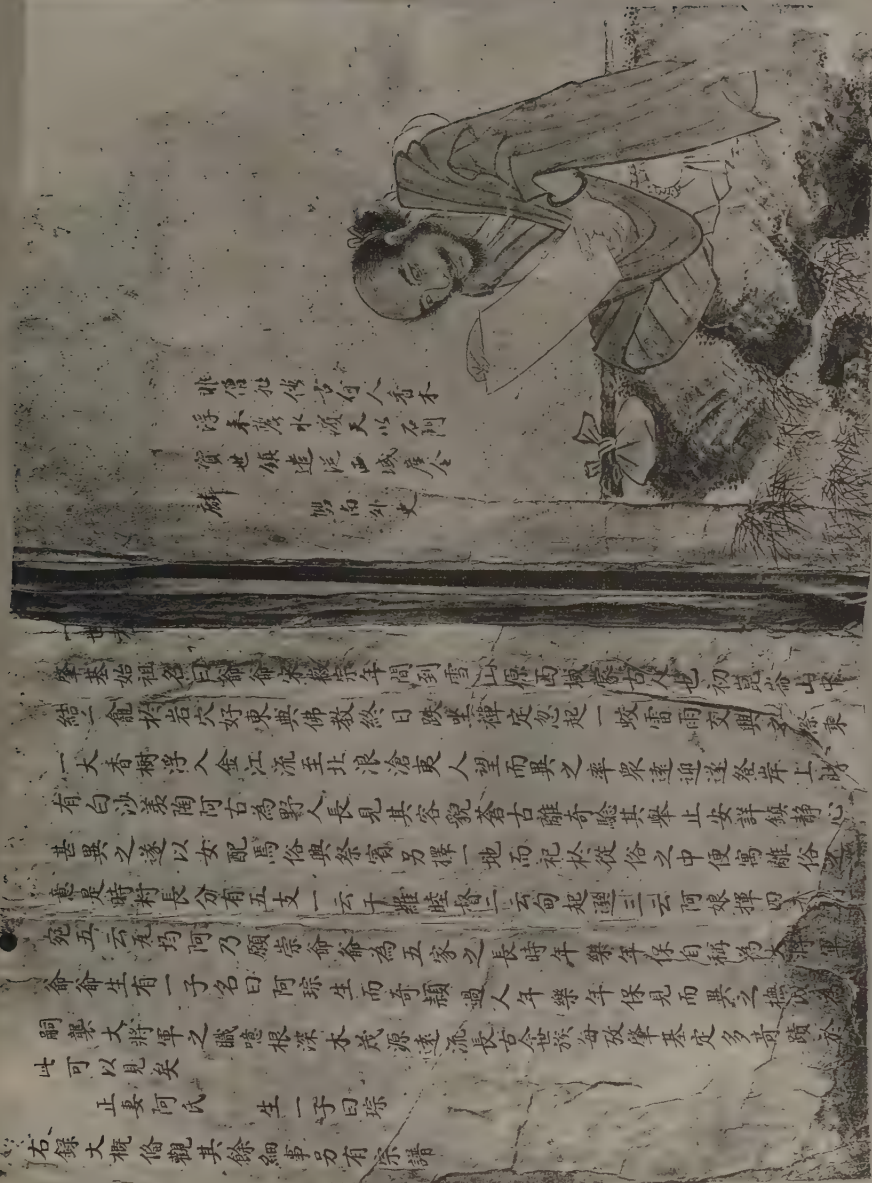 非僧非俗古行人香木
浮來麗水濱天以石門
資世鎮遣從西域産金
麟 外史
一世考
肇基始祖名曰爺爺宋徽宗年間到雪山原西域蒙古人也初崑崙山中
結一龕於岩穴好東典佛教終日趺坐禪定忽起一蛟雷雨交興之際乘
一大香樹浮入金江流至北浪滄夷人望而異之率衆遠迎遂登岸上時
有白沙羨陶阿古為野人長見其容貌蒼古離奇驗其舉止安詳鎮静心
甚異之遂以女配焉俗與祭賓另擇一地而祀於從俗之中便寓離俗之
意是時村長分有五支一云干羅睦督二云甸起選三云阿娘揮四
宛五云瓦均阿乃願崇爺爺為五家之長時年樂年保自稱為大將軍
爺爺生有一子名曰阿琮生而奇穎過人年樂年保見而異之撫以為
嗣襲大將軍之職噫根深木茂源遠流長古今世族每攷肇基定多奇蹟於
此可以見矣
正妻阿氏 生一子曰琮
右録大概俻觀其餘細事另有宗譜